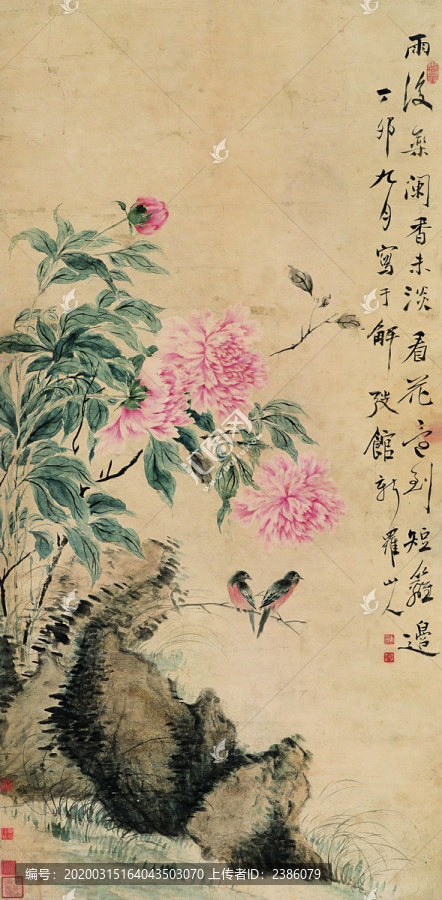 雨後藥闌香未淡看花宜到短籬邊
丁卯九月寫于解弢館新羅山人
编号：20200315164043503070 上传者ID：2386079